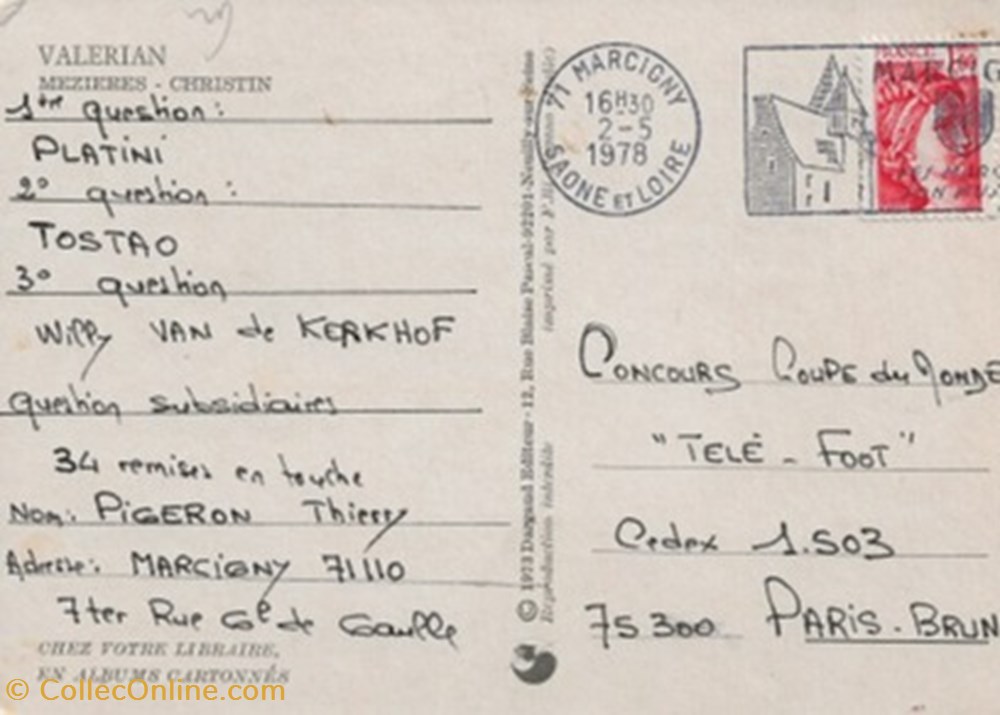 VALERIAN
MEZIERES - CHRISTIN
1ère question:
PLATINI
2° question:
TOSTAO
3° question
Willy VAN de KERKHOF
question subsidiaires
34 remises en touche
Nom: PIGERON Thierry
Adresse: MARCIGNY 71110
7ter Rue Gl de Gaulle
CHEZ VOTRE LIBRAIRE,
EN ALBUMS CARTONNÉS
© 1973 Dargaud Editeur - 12, Rue Blaise Pascal-92201-Neuilly-sur-Seine
Reproduction interdite
imprimé par
71 MARCIGNY
16H30
2-5
1978
SAONE ET LOIRE
FRANCE
CONCOURS COUPE du MONDE
"TELÉ - FOOT"
Cedex 1.503
75 300 PARIS - BRUN
© CollecOnline.com